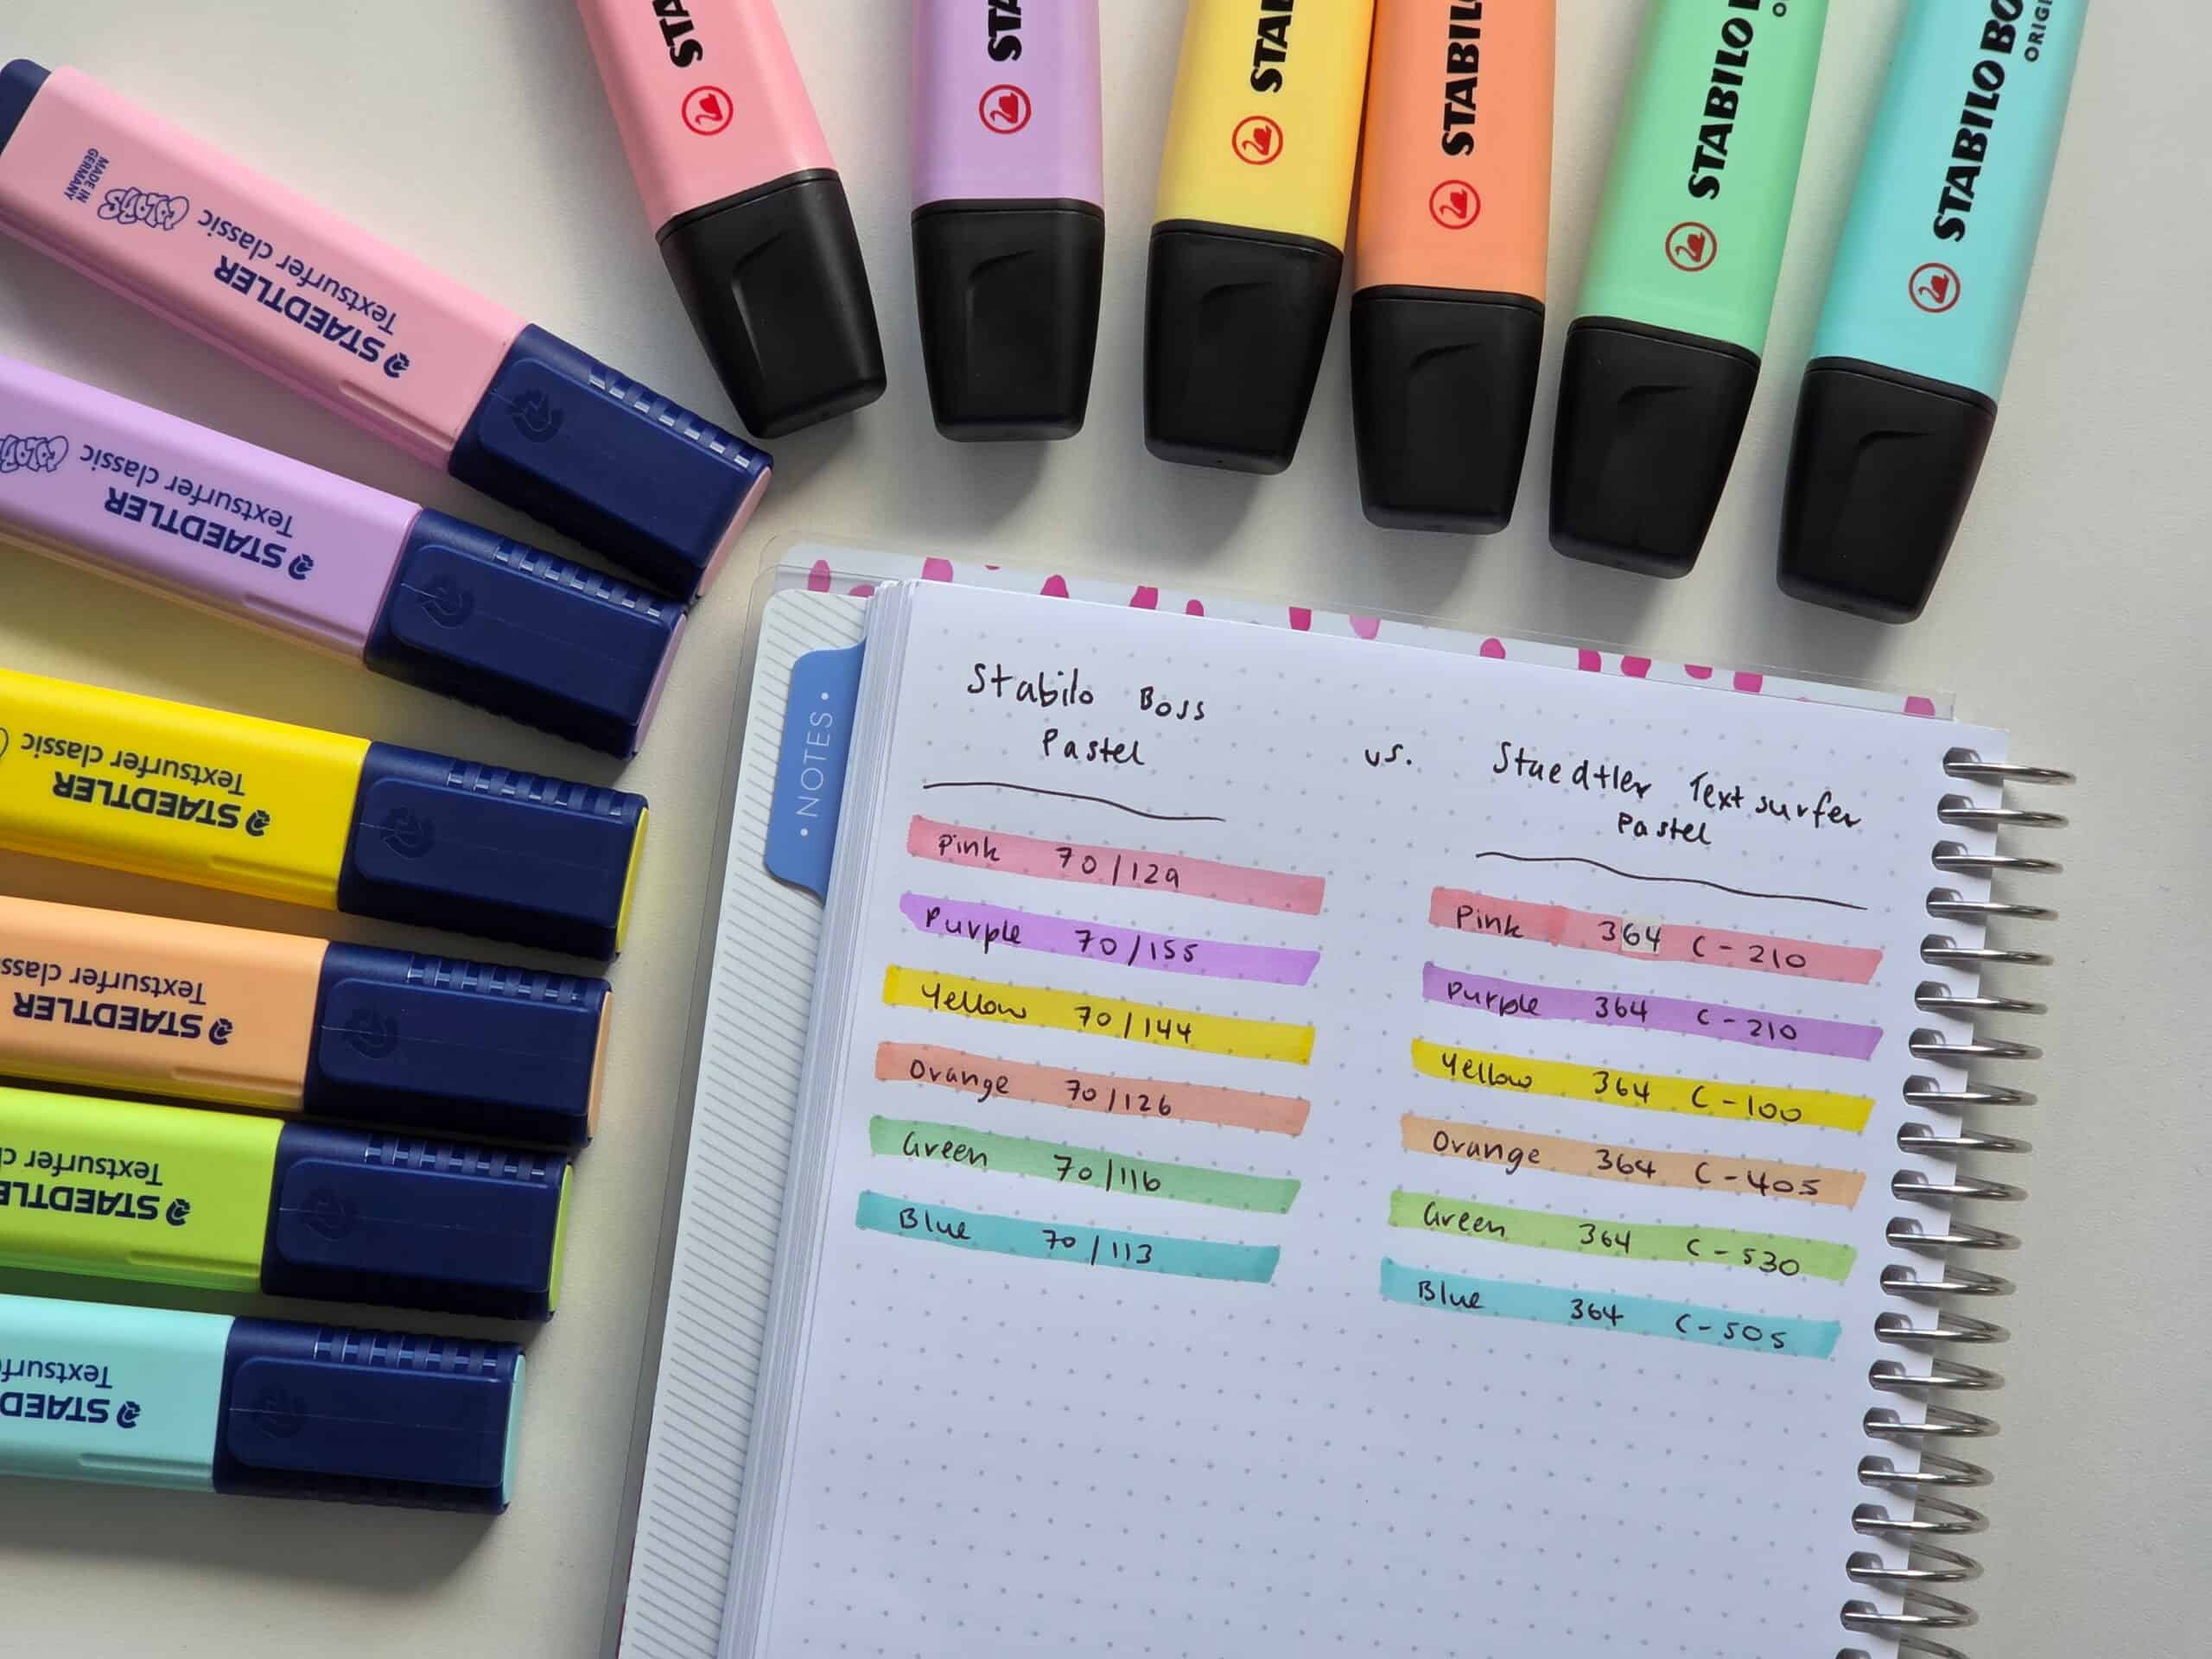 MADE IN
GERMANY
COLORS
Textsurfer classic
STAEDTLER
Textsurfer classic
STAEDTLER
Textsurfer classic
STAEDTLER
STAEDTLER
Textsurfer
Textsurfer
STABILO
STABILO
STABILO BO
• NOTES •
Stabilo Boss
Pastel
vs.
Staedtler Textsurfer
Pastel
Pink 70/129
Purple 70/155
Yellow 70/144
Orange 70/126
Green 70/116
Blue 70/113
Pink 364 C-210
Purple 364 C-210
Yellow 364 C-100
Orange 364 C-405
Green 364 C-530
Blue 364 C-505